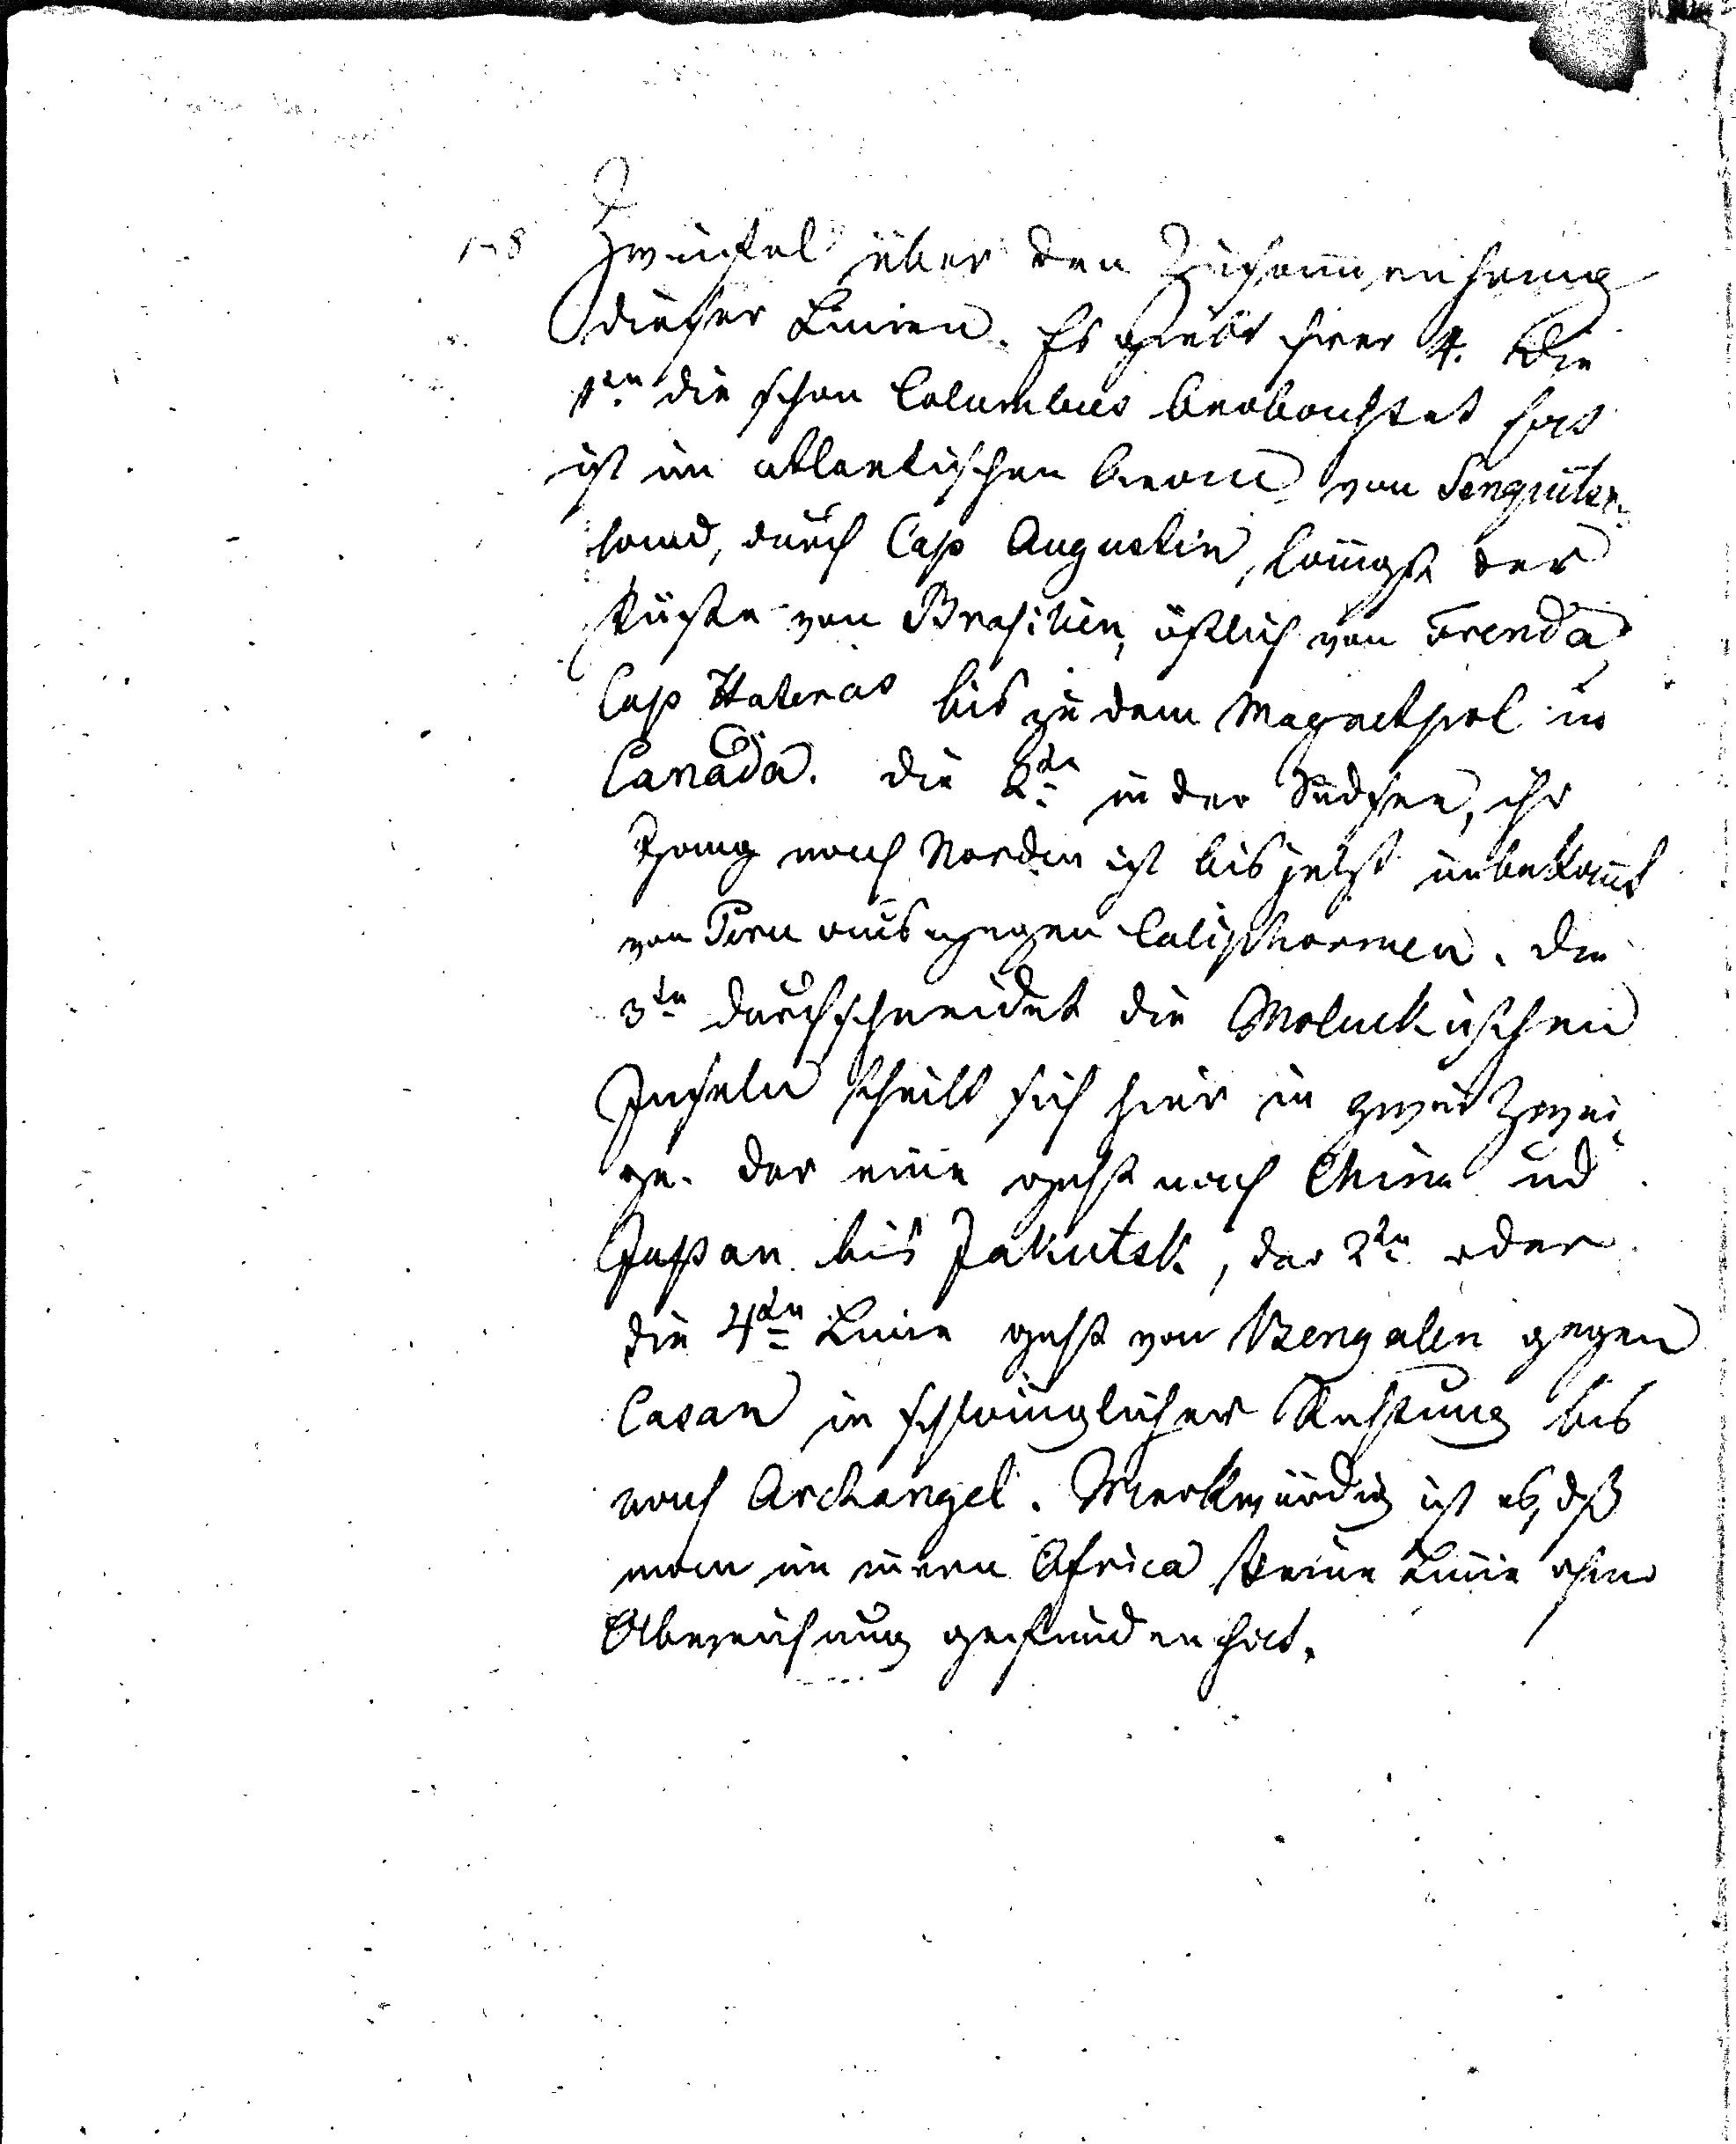 Zweifel über den Zusam̅enhang
dieser Linien. Es giebt ihrer 4. Die
1te die schon Columbus beobachtet hat
ist im atlantischen Ocean von
land, durch Cap Augustin, längst der
Küste von Brasilien, östlich von
Cap Hateras bis zu dem Magnetpol in
Canada. die 2te in der Südsee, ihr
Gang nach Norden ist bis jetzt unbekan̅t
von Peru aus gegen Caliphornien. die
3te durchschneidet die Moluckischen
Inseln theilt sich hier in zwei Zwei-
ge. der eine geht nach China und
Japan bis Jakutsk, der 2te oder
die 4te Linie geht von Bengalen gegen
Casan in schlänglicher Richtung bis
nach Archangel. Merkwürdig ist es, dß
man im in̅ern Africa keine Linie ohne
Abweichung gefunden hat.